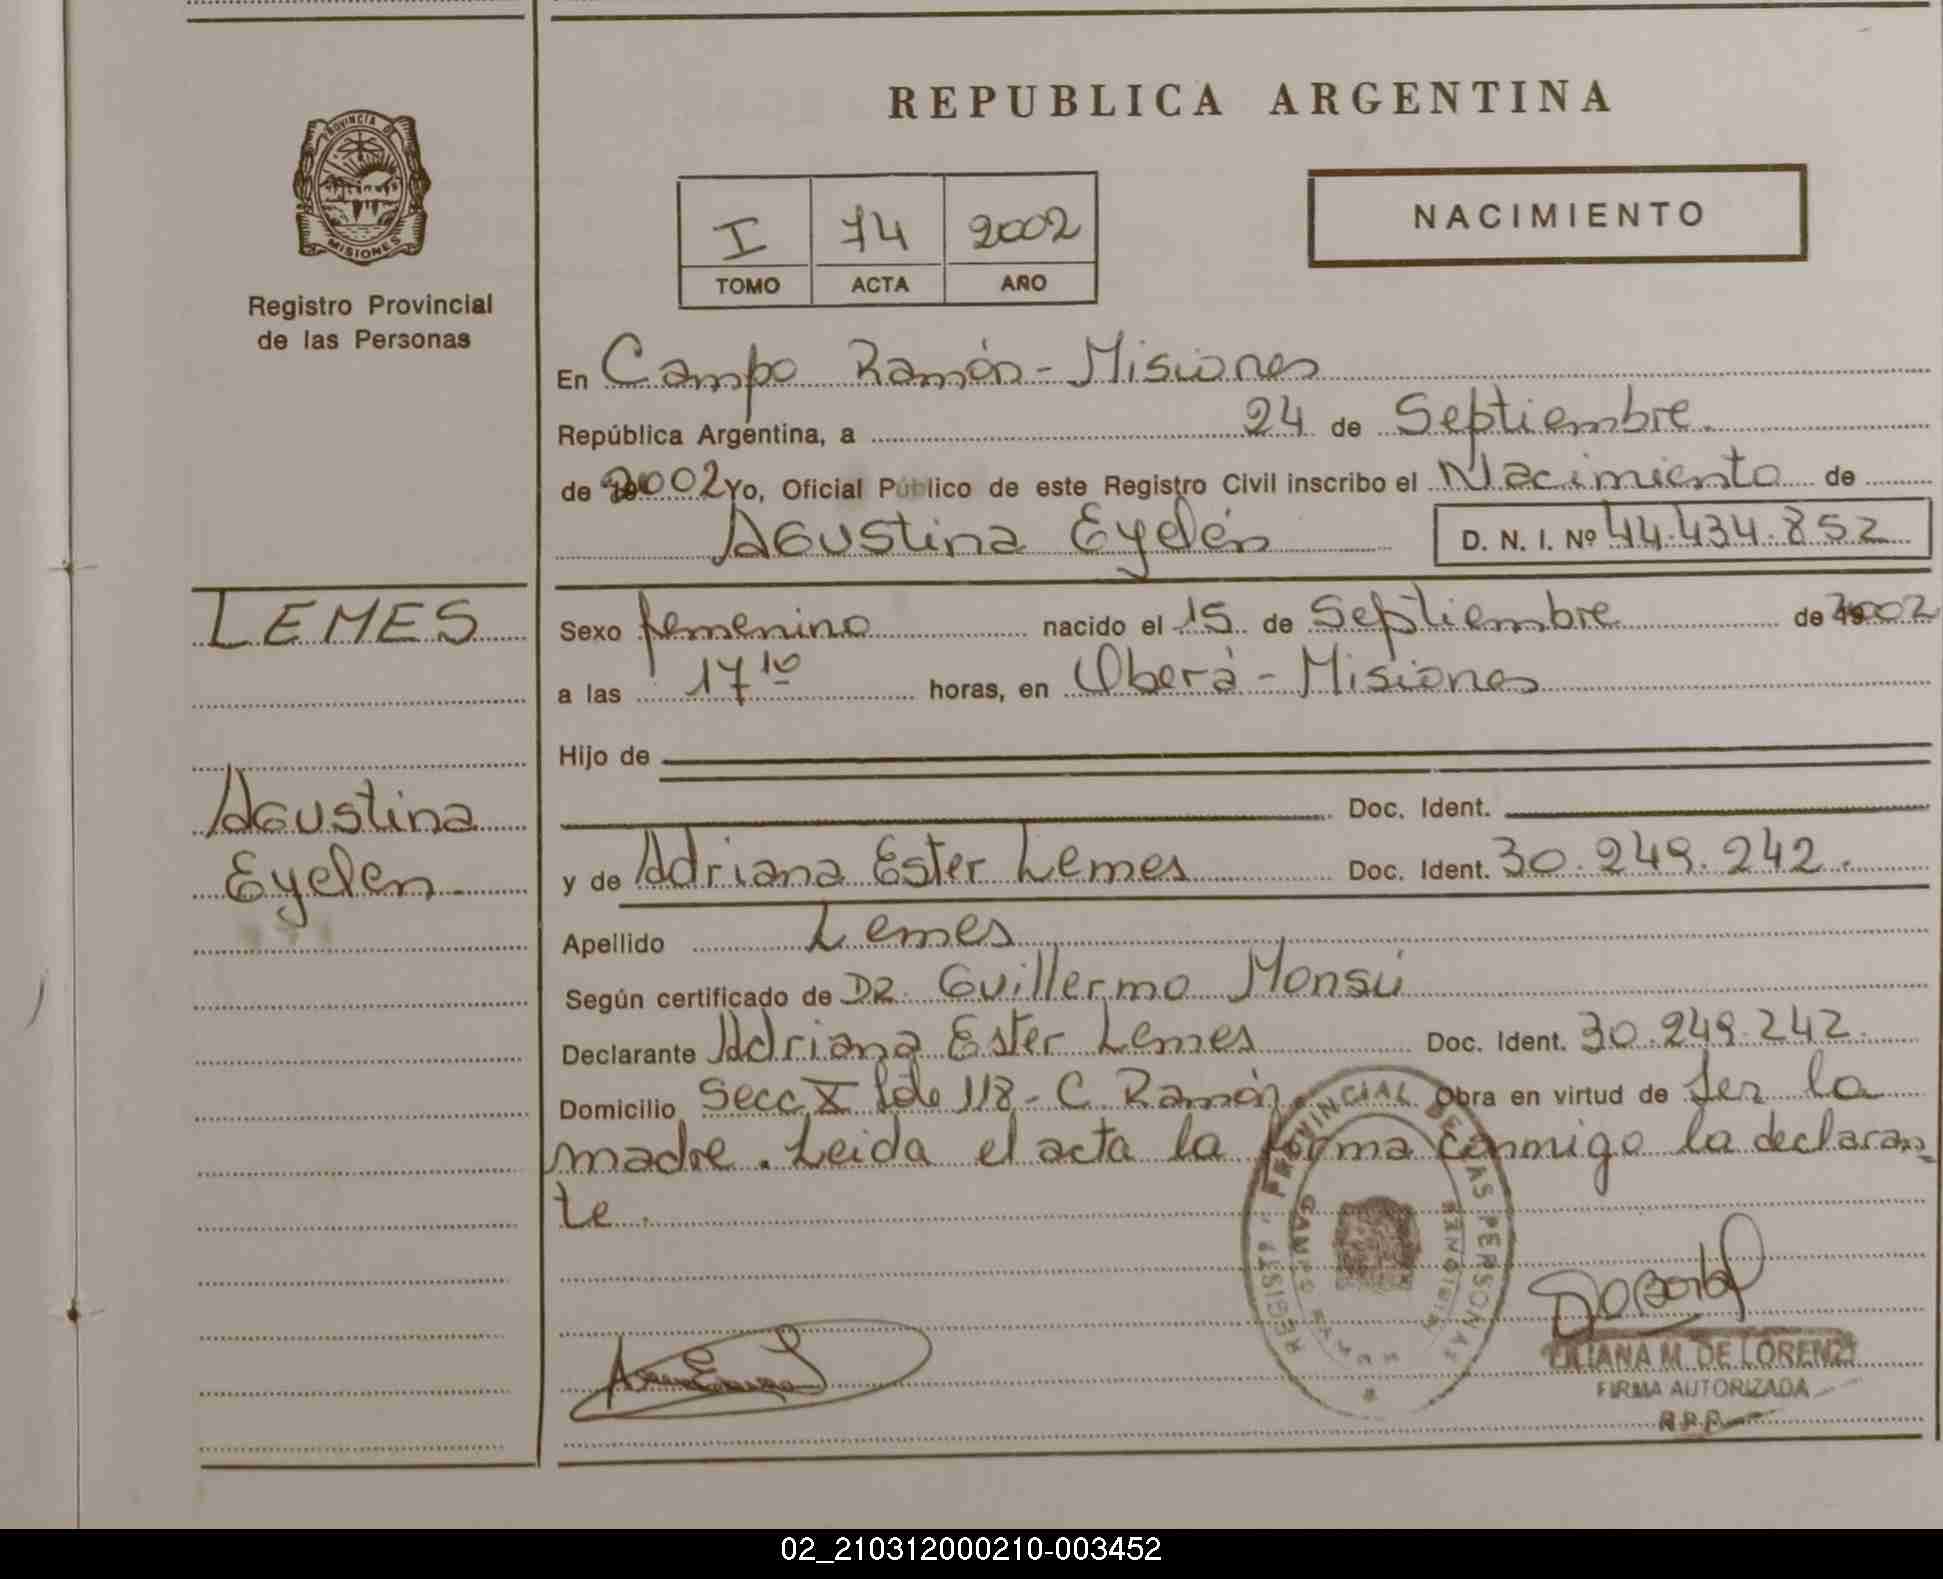 REPUBLICA ARGENTINA
PROVINCIA DE
MISIONES
Registro Provincial
de las Personas
I 74 2002
TOMO ACTA AÑO
NACIMIENTO
En Campo Ramón - Misiones
República Argentina, a 24 de Septiembre.
de 2002 Yo, Oficial Público de este Registro Civil inscribo el Nacimiento de
Agustina Eyelén D. N. I. Nº 44.434.852
LEMES
Sexo femenino nacido el 15 de Septiembre de 2002
a las 17 10 horas, en Oberá - Misiones
Hijo de
Doc. Ident.
Agustina
Eyelen
y de Adriana Ester Lemes Doc. Ident. 30.249.242.
Apellido Lemes
Según certificado de DR. Guillermo Monsú
Declarante Adriana Ester Lemes Doc. Ident. 30.249.242.
Domicilio Secc X Lote 118 - C. Ramón. Obra en virtud de Ser la
madre. Leida el acta la firma conmigo la declaran-
te.
REGIST. PROVINCIAL DE LAS PERSONAS
CAMPO MISIONES
LILIANA M. DE LORENZI
FIRMA AUTORIZADA
R.P.P.
02_210312000210-003452